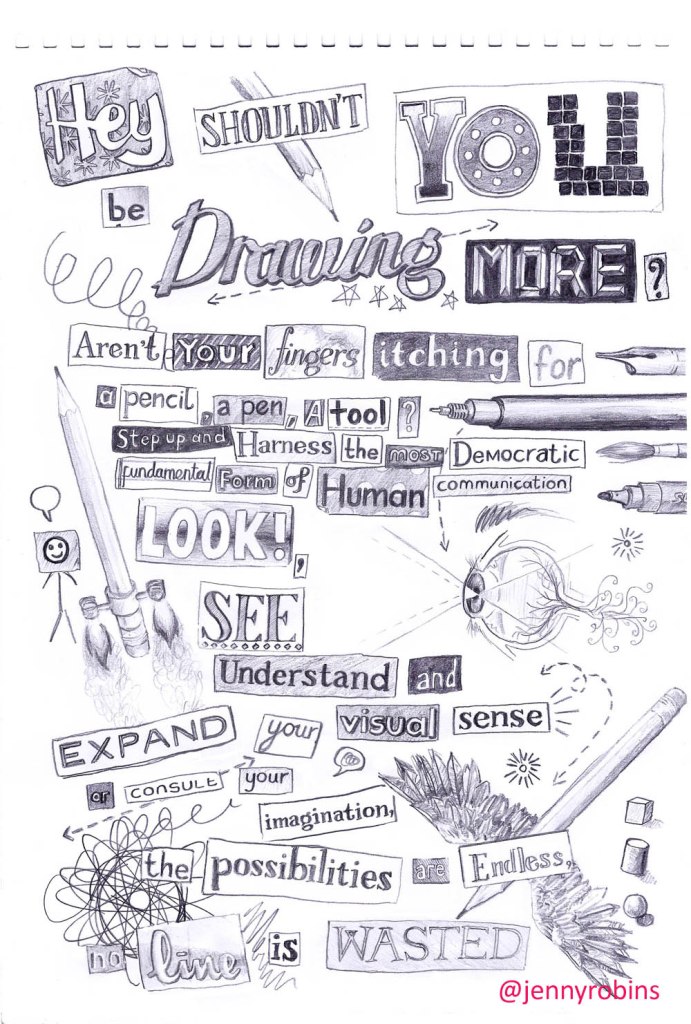 Hey SHOULDN'T YOU
be Drawing MORE?
Aren't Your fingers itching for
a pencil, a pen, A tool?
Step up and Harness the most Democratic
fundamental Form of Human communication
LOOK!,
SEE
Understand and
EXPAND your visual sense
or CONSULT your
imagination,
the possibilities are Endless,
no line is WASTED
@jennyrobins